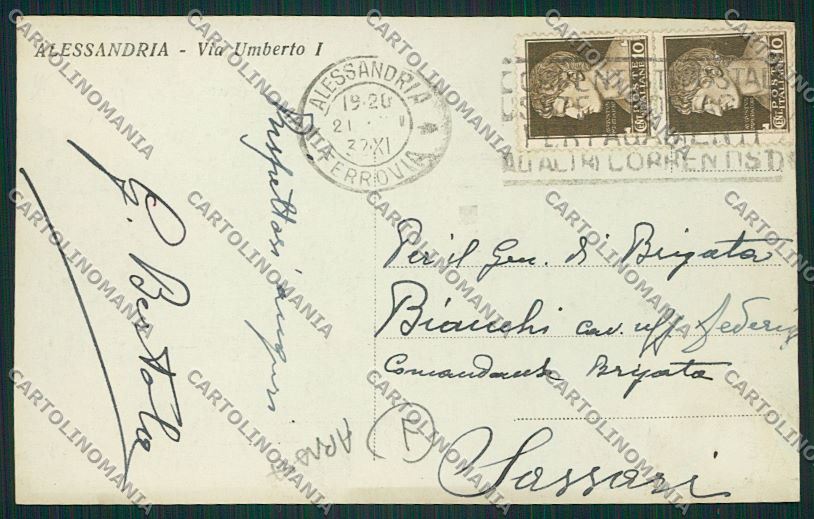 ALESSANDRIA - Via Umberto I
ALESSANDRIA
19-20
21
32 XI
FERROVIA
POSTE ITALIANE
CENT 10
POSTE ITALIANE
CENT 10
AD ALTRI CORRENTISTI
Rispettosi auguri
G. Bertola
Per il Gen. di Brigata
Bianchi cav. uff. Federig
Comandante Brigata
Sassari
CARTOLINOMANIA